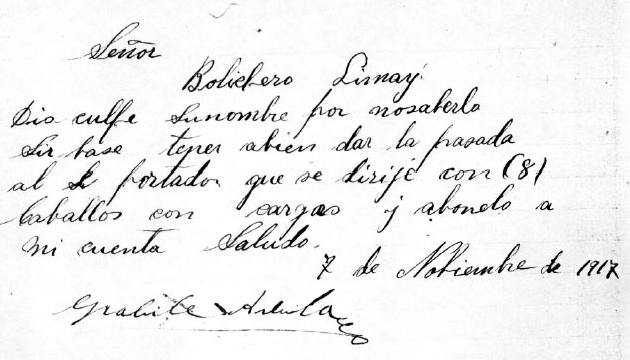 Señor
Bolichero Limay.
Dis culpe sunombre por nosaberlo
Sir base tener abien dar la pasada
al portador que se dirije con (8)
Caballos con cargas y abonelo a
mi cuenta Saludo.
7 de Nobiembre de 1917